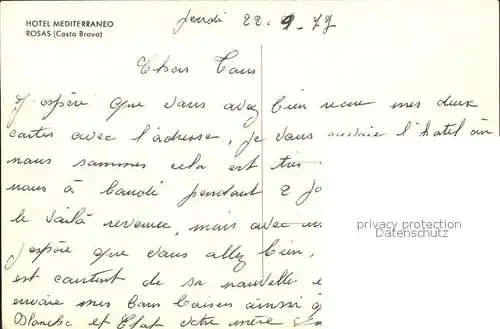 HOTEL MEDITERRANEO
ROSAS (Costa Brava)
Jeudi 22-9-79
Chers Tous
J'espère que vous avez bien reçue mes deux
cartes avec l'adresse, je vous envoie l'hotel où
nous sommes cela est très
nous à boudé pendant 2 jo
le voilà revenue, mais avec
j'espère que vous allez bien,
est content de sa nouvelle
envoie mes bons baisers ainssi q
Blanche et votre mère
privacy protection
Datenschutz